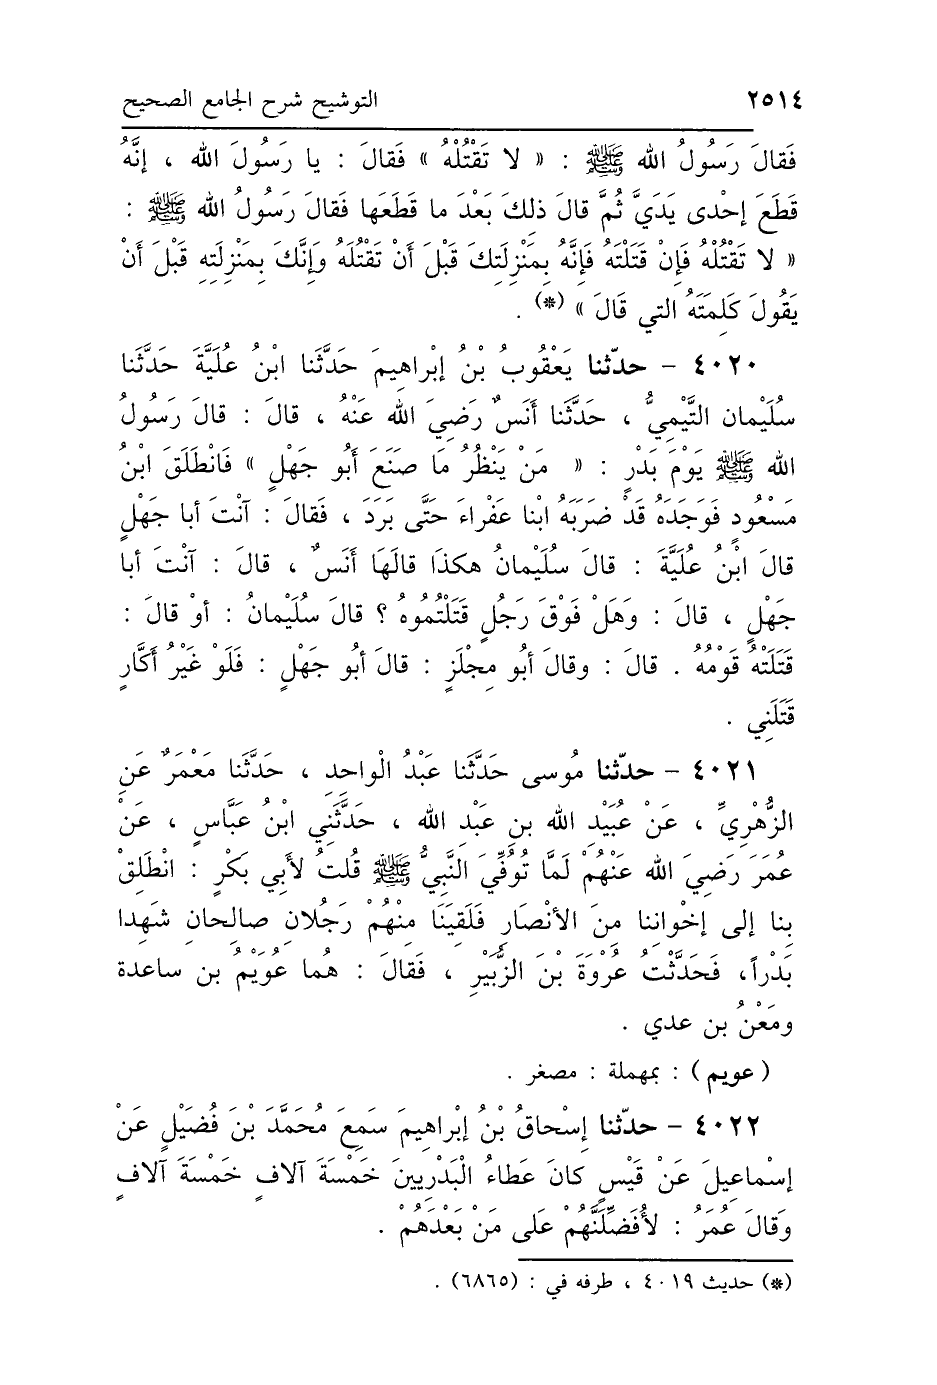 ٢٥١٤ التوشيح شرح الجامع الصحيح
فَقالَ رَسُولُ الله ﷺ : « لا تَقْتُلْهُ » فَقالَ : يا رَسُولَ الله ، إنَّهُ
قَطَعَ إحْدى يَدَيَّ ثُمَّ قالَ ذلِكَ بَعْدَ ما قَطَعَها فَقالَ رَسُولُ الله ﷺ :
« لا تَقْتُلْهُ فَإنْ قَتَلْتَهُ فَإنَّهُ بِمَنْزِلَتِكَ قَبْلَ أنْ تَقْتُلَهُ وَإنَّكَ بِمَنْزِلَتِهِ قَبْلَ أنْ
يَقُولَ كَلِمَتَهُ التي قَالَ » (*) .
٤٠٢٠ - حدّثنا يَعْقُوبُ بْنُ إبْراهِيمَ حَدَّثَنا ابْنُ عُلَيَّةَ حَدَّثَنا
سُلَيْمان التَّيْمِيُّ ، حَدَّثَنا أنَسٌ رَضِيَ الله عَنْهُ ، قالَ : قالَ رَسُولُ
الله ﷺ يَوْمَ بَدْرٍ : « مَنْ يَنْظُرُ مَا صَنَعَ أبُو جَهْلٍ » فَانْطَلَقَ ابْنُ
مَسْعُودٍ فَوَجَدَهُ قَدْ ضَرَبَهُ ابْنا عَفْراءَ حَتَّى بَرَدَ ، فَقالَ : آنْتَ أبا جَهْلٍ
قالَ ابْنُ عُلَيَّةَ : قالَ سُلَيْمانُ هكذَا قالَهَا أنَسٌ ، قالَ : آنْتَ أبا
جَهْلٍ ، قالَ : وَهَلْ فَوْقَ رَجُلٍ قَتَلْتُمُوهُ ؟ قالَ سُلَيْمانُ : أوْ قالَ :
قَتَلَتْهُ قَوْمُهُ . قالَ : وقالَ أبُو مِجْلَزٍ : قالَ أبُو جَهْلٍ : فَلَوْ غَيْرُ أكَّارٍ
قَتَلَنِي .
٤٠٢١ - حدّثنا مُوسى حَدَّثَنا عَبْدُ الْواحِدِ ، حَدَّثَنا مَعْمَرٌ عَنِ
الزُّهْرِيِّ ، عَنْ عُبَيْدِ الله بنِ عَبْدِ الله ، حَدَّثَنِي ابْنُ عَبَّاسٍ ، عَنْ
عُمَرَ رَضِيَ الله عَنْهُمْ لَمَّا تُوُفِّيَ النَّبِيُّ ﷺ قُلتُ لأبي بَكْرٍ : انْطَلِقْ
بنا إلى إخْواننا مِنَ الأنْصَارِ فَلَقِيَنَا مِنْهُمْ رَجُلانِ صالِحانِ شَهِدا
بَدْراً، فَحَدَّثْتُ عُرْوَةَ بْنَ الزُّبَيْرِ ، فَقالَ : هُما عُوَيْمُ بن ساعدة
ومَعْنُ بن عدي .
( عويم ) : بمهملة : مصغر .
٤٠٢٢ - حدّثنا إسْحاقُ بْنُ إبْراهِيمَ سَمِعَ مُحَمَّدَ بْنَ فُضَيْلٍ عَنْ
إسْماعِيلَ عَنْ قَيْسٍ كانَ عَطاءُ الْبَدْرِيينَ خَمْسَةَ آلافٍ خَمْسَةَ آلافٍ
وَقَالَ عُمَرُ : لأُفَضِّلَنَّهُمْ عَلى مَنْ بَعْدَهُمْ .
(*) حديث ٤٠١٩ ، طرفه في : (٦٨٦٥) .